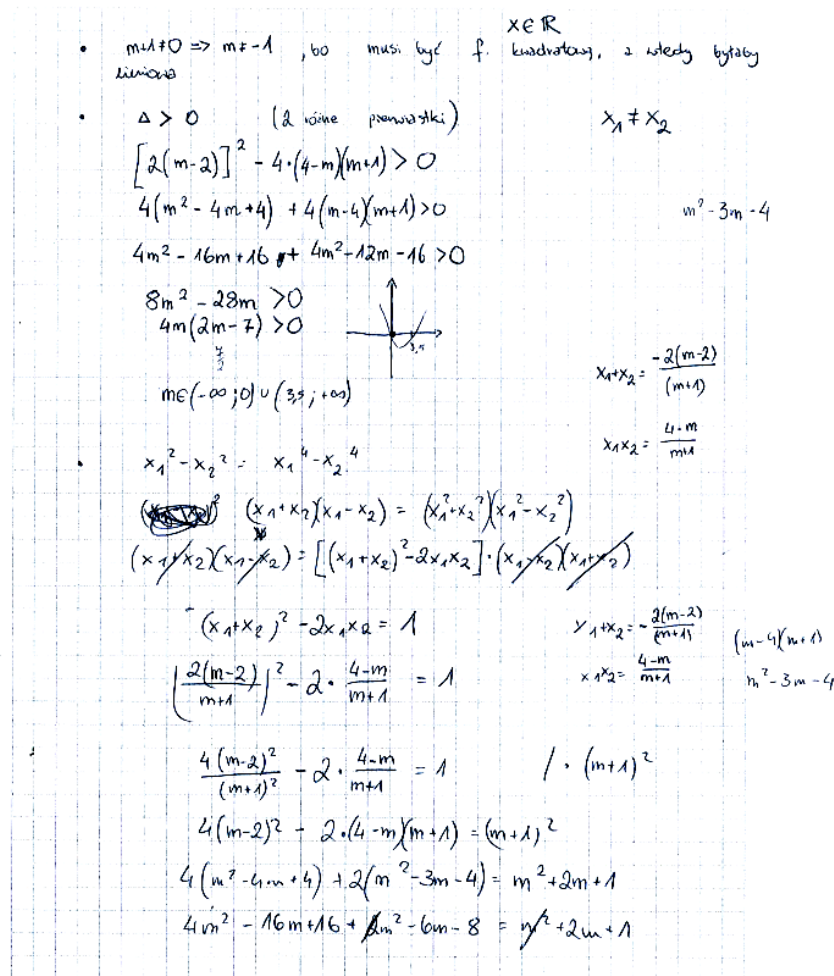 x∈ℝ
• m+1≠0 => m≠-1 , bo musi być f. kwadratową, a wtedy byłaby
liniowa
• Δ > 0 (2 różne pierwiastki) x₁ ≠ x₂
[2(m-2)]² - 4·(4-m)(m+1) > 0
4(m² - 4m+4) + 4(m-4)(m+1)>0 m²-3m-4
4m² - 16m+16 + 4m²-12m-16 >0
8m² - 28m >0
4m(2m-7) >0
7/2
3,5
m∈(-∞;0)∪(3,5;+∞)
x₁+x₂= -2(m-2)/(m+1)
x₁x₂= 4-m/m+1
• x₁²-x₂² = x₁⁴-x₂⁴
(x₁+x₂)(x₁-x₂) = (x₁²+x₂²)(x₁²-x₂²)
(x₁+x₂)(x₁-x₂) = [(x₁+x₂)²-2x₁x₂]·(x₁-x₂)(x₁+x₂)
(x₁+x₂)² -2x₁x₂ = 1 x₁+x₂=-2(m-2)/(m+1) (m-4)(m+1)
(2(m-2)/m+1)² - 2· 4-m/m+1 = 1 x₁x₂= 4-m/m+1 m²-3m-4
4(m-2)²/(m+1)² - 2· 4-m/m+1 = 1 /·(m+1)²
4(m-2)² - 2·(4-m)(m+1) = (m+1)²
4(m²-4m+4) +2(m²-3m-4) = m²+2m+1
4m² - 16m+16 + 2m²-6m-8 = m²+2m+1